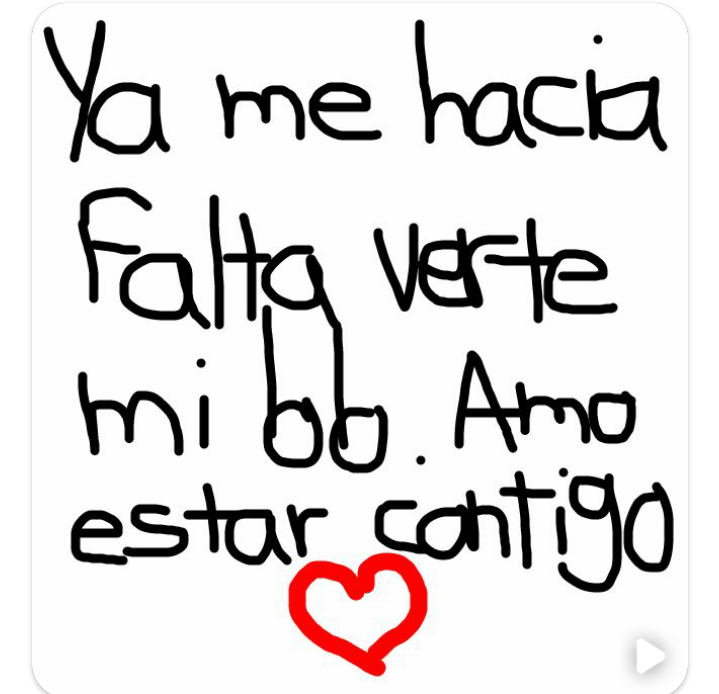 Ya me hacia
Falta verte
mi bb. Amo
estar contigo